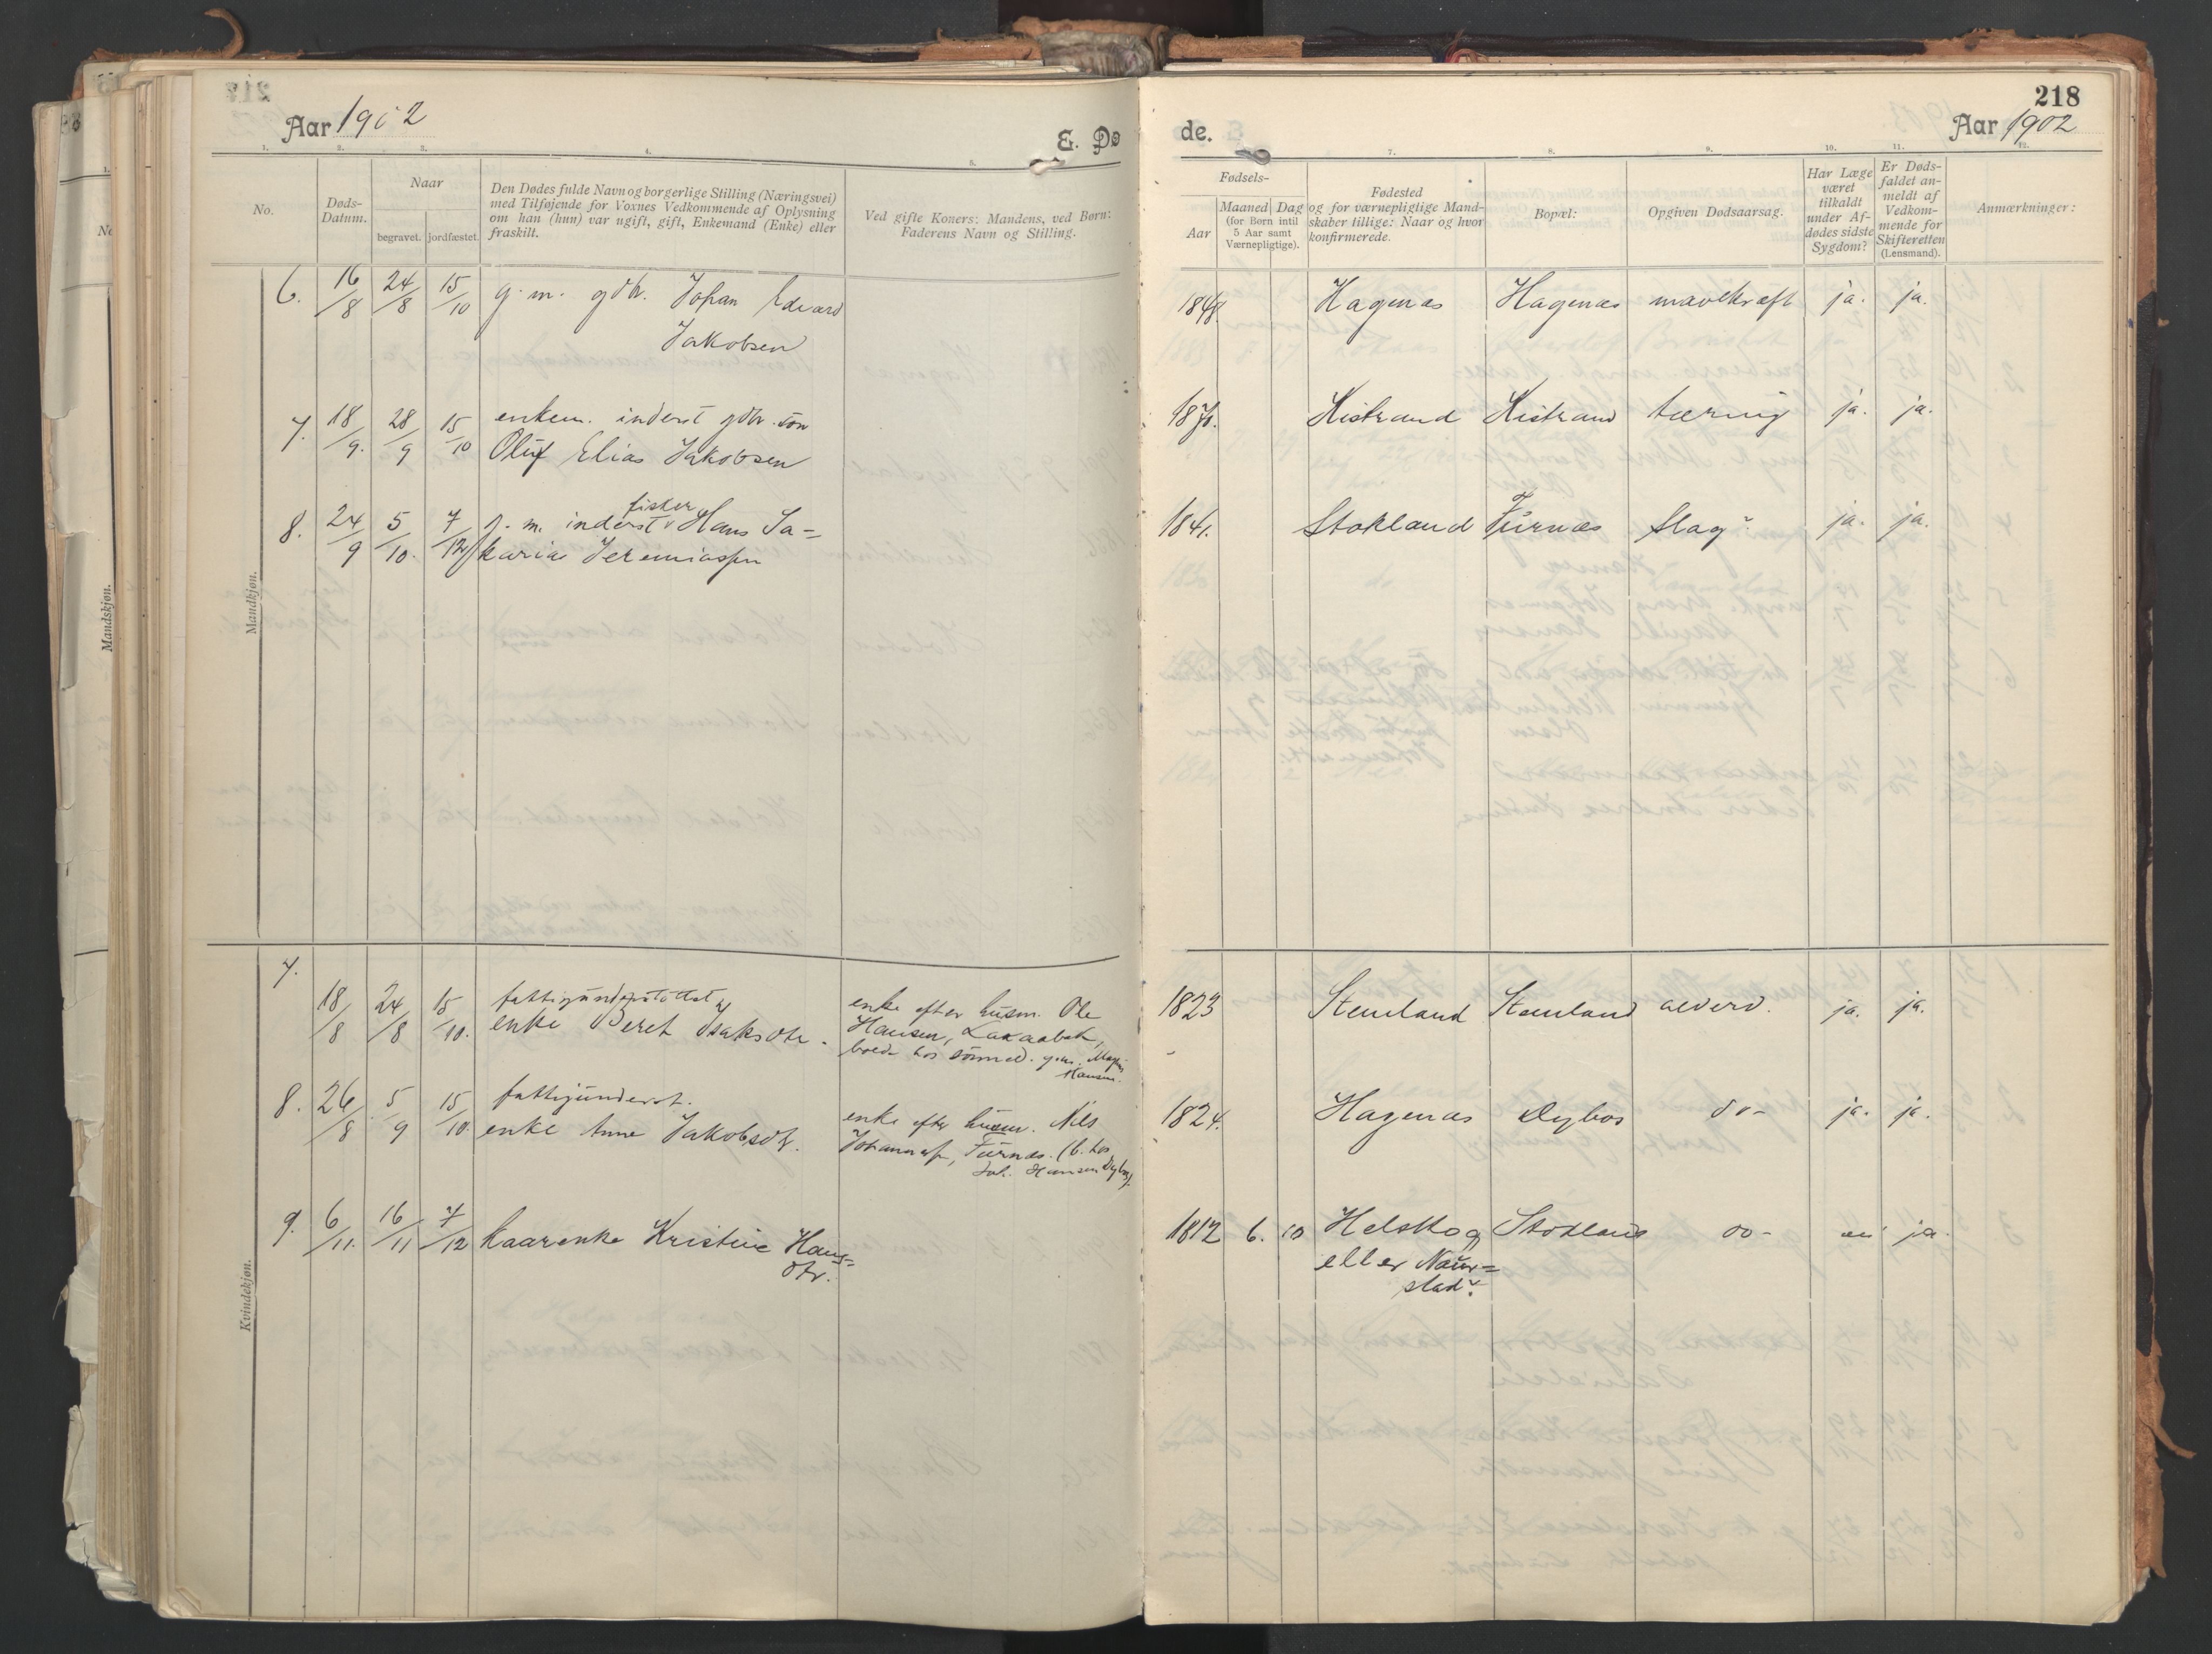 Aar 1902
E. Dø
1. 2. 3. 4. 5.
No.
Døds-
Datum.
Naar
begravet. jordfæstet.
Den Dødes fulde Navn og borgerlige Stilling (Næringsvei)
med Tilføjende for Voxnes Vedkommende af Oplysning
om han (hun) var ugift, gift, Enkemand (Enke) eller
fraskilt.
Ved gifte Koners: Mandens, ved Børn:
Faderens Navn og Stilling.
Mandkjøn.
6. 16/8 24/8 15/10 g. m. gdbr. Johan Edvard
Jakobsen
7. 18/9. 28/9 15/10 enkem. inderst gdbr. søn
Oluf Elias Jakobsen
fisker
8. 24/9 5/10. 7/12 g. m. inderst Hans Sa=
karia Jeremiassen
Kvindekjøn.
7.
18/8 24/8 15/10. fattigunderstøttet
enke Beret Isaksdtr.
enke efter husm. Ole
Hansen, Laxaabak,
boede hos sønnen
Hansen.
8. 26/8 5/9 15/10. fattigunderst.
enke Anne Jakobsdtr.
enke efter husm. Nils
Johannes, Furnæs. (b. hos
Joh. Hansen Dybos).
9. 6/11. 16/11 7/12 kaarenke Kristine Hans=
dtr.
218
de.
Aar 1902
7. 8. 9. 10. 11. 12.
Fødsels-
Aar
Maaned
(for Børn intil
5 Aar samt
Værnepligtige).
Dag
Fødested
og for værnepligtige Mand-
skaber tillige: Naar og hvor
konfirmerede.
Bopæl:
Opgiven Dødsaarsag.
Har Læge
været
tilkaldt
under Af-
dødes sidste
Sygdom?
Er Døds-
faldet an-
meldt af
Vedkom-
mende for
Skifteretten
(Lensmand).
Anmærkninger:
1848. Hagenæs Hagenæs mavekræft ja. ja.
1870. Kistrand Kistrand tæring ja. ja.
1841. Stokland Furnæs Slag? ja. ja.
1823 Stenland Stenland alderd. ja. ja.
1824. Hagenæs Dybos do- ja. ja.
1812 6. 10 Helskog Stokland do- nei ja.
eller Naur=
stad?